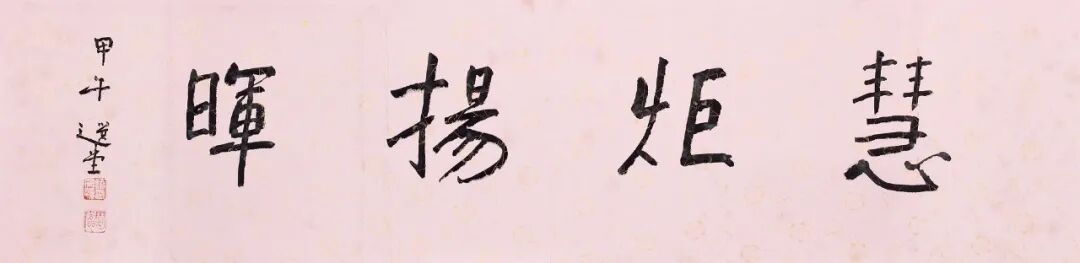 慧炬揚暉
甲午 選堂